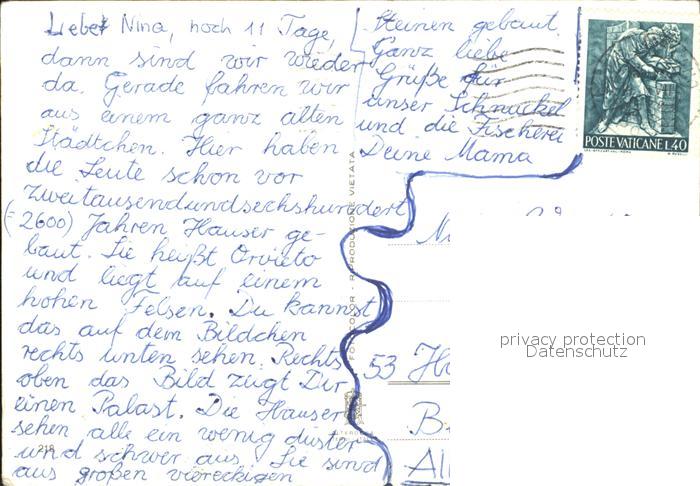 Liebe Nina, noch 11 Tage,
dann sind wir wieder
da. Gerade fahren wir
aus einem ganz alten
Städtchen. Hier haben
die Leute schon vor
zweitausendundsechshundert
(= 2600) Jahren Häuser ge-
baut. Sie heißt Orvieto
und liegt auf einem
hohen Felsen. Du kannst
das auf dem Bildchen
rechts unten sehen. Rechts
oben das Bild zeigt Dir
einen Palast. Die Häuser
sehen alle ein wenig düster
und schwer aus. Sie sind
aus großen viereckigen
Steinen gebaut.
Ganz liebe
Grüße für
unser Schnuckel
und die Fischerei
Deine Mama
POSTE VATICANE L.40
RIPRODUZIONE VIETATA
218
53
privacy protection
Datenschutz